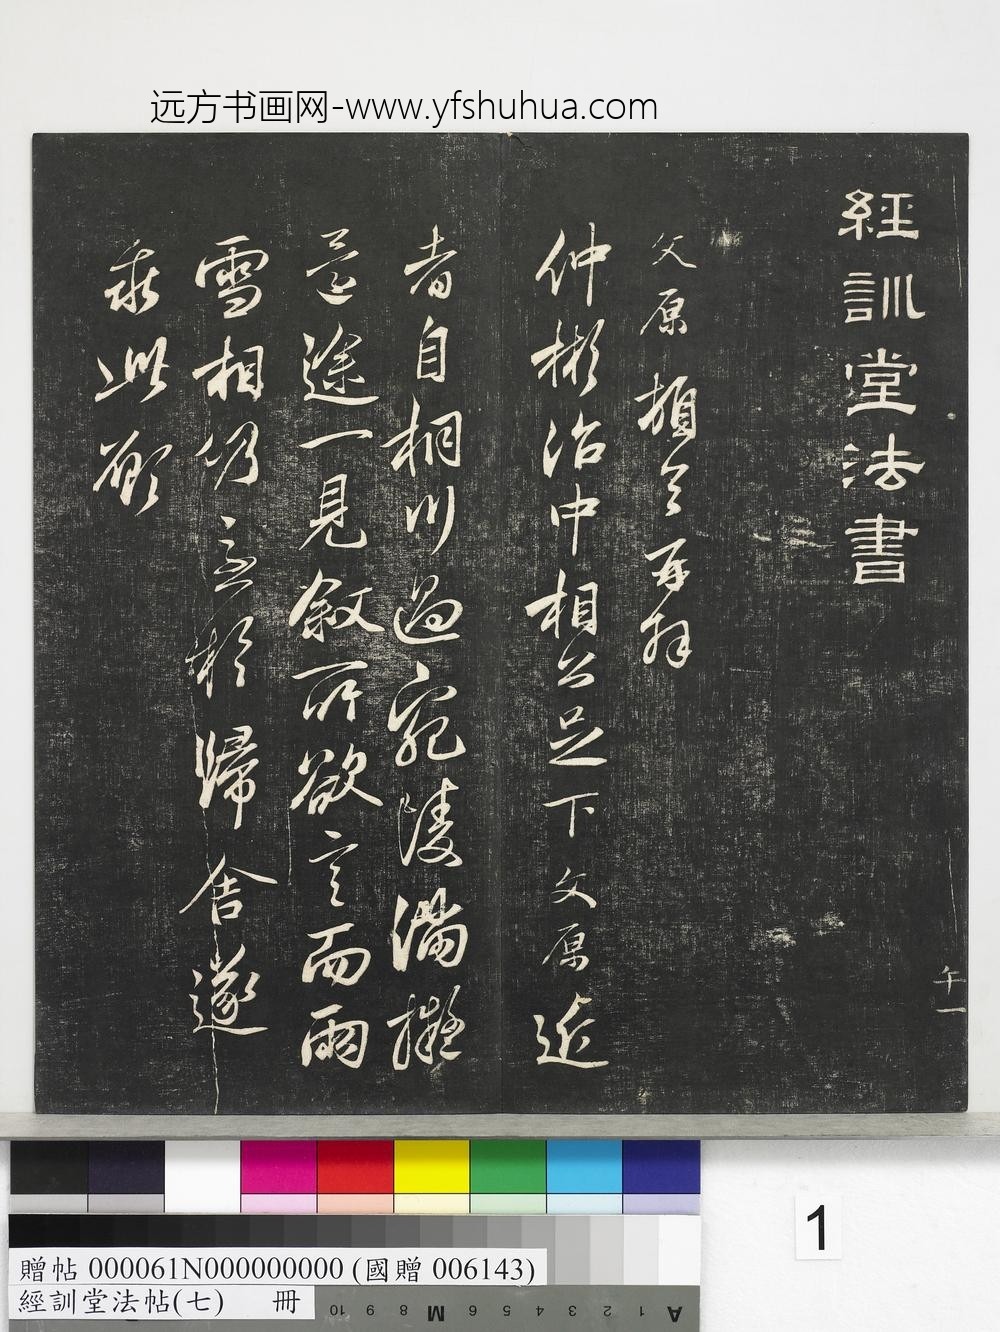 远方书画网-www.yfshuhua.com
經訓堂法書
文原頓首再拜
仲彬治中相公足下文原近
者自桐川過宛陵滿擬
還途一見叙所欲言而雨
雪相仍亟於歸舍遂
乖此願
午一
1
贈帖 000061N000000000 (國贈 006143)
經訓堂法帖(七) 冊
10 9 8 M 6 5 4 3 2 1 A